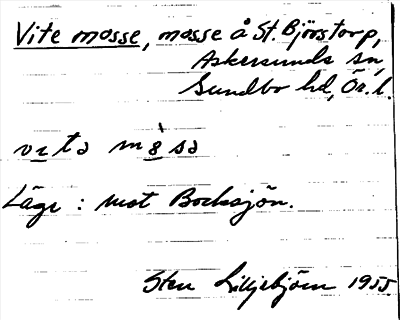 Vite mosse, mosse å St. Björstorp,
Askersunds sn,
Sundbo hd, Ör. l.
vıta mɜsa
Läge: mot Bocksjön.
Sten Liljebjörn 1955